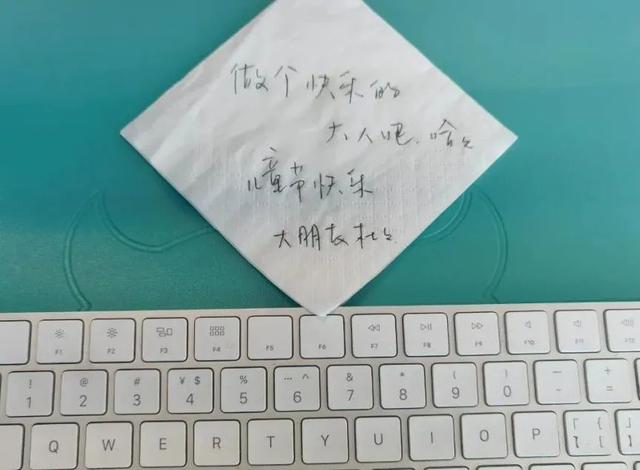 做个快乐的
大人吧,哈哈
儿童节快乐
大朋友杜
F1 F2 F3 F4 F5 F6 F7 F8 F9 F10 F11 F12
! @ # ¥ $ % … ^ & * ( ) - + 
1 2 3 4 5 6 7 8 9 0 =
Q W E R T Y U I O P